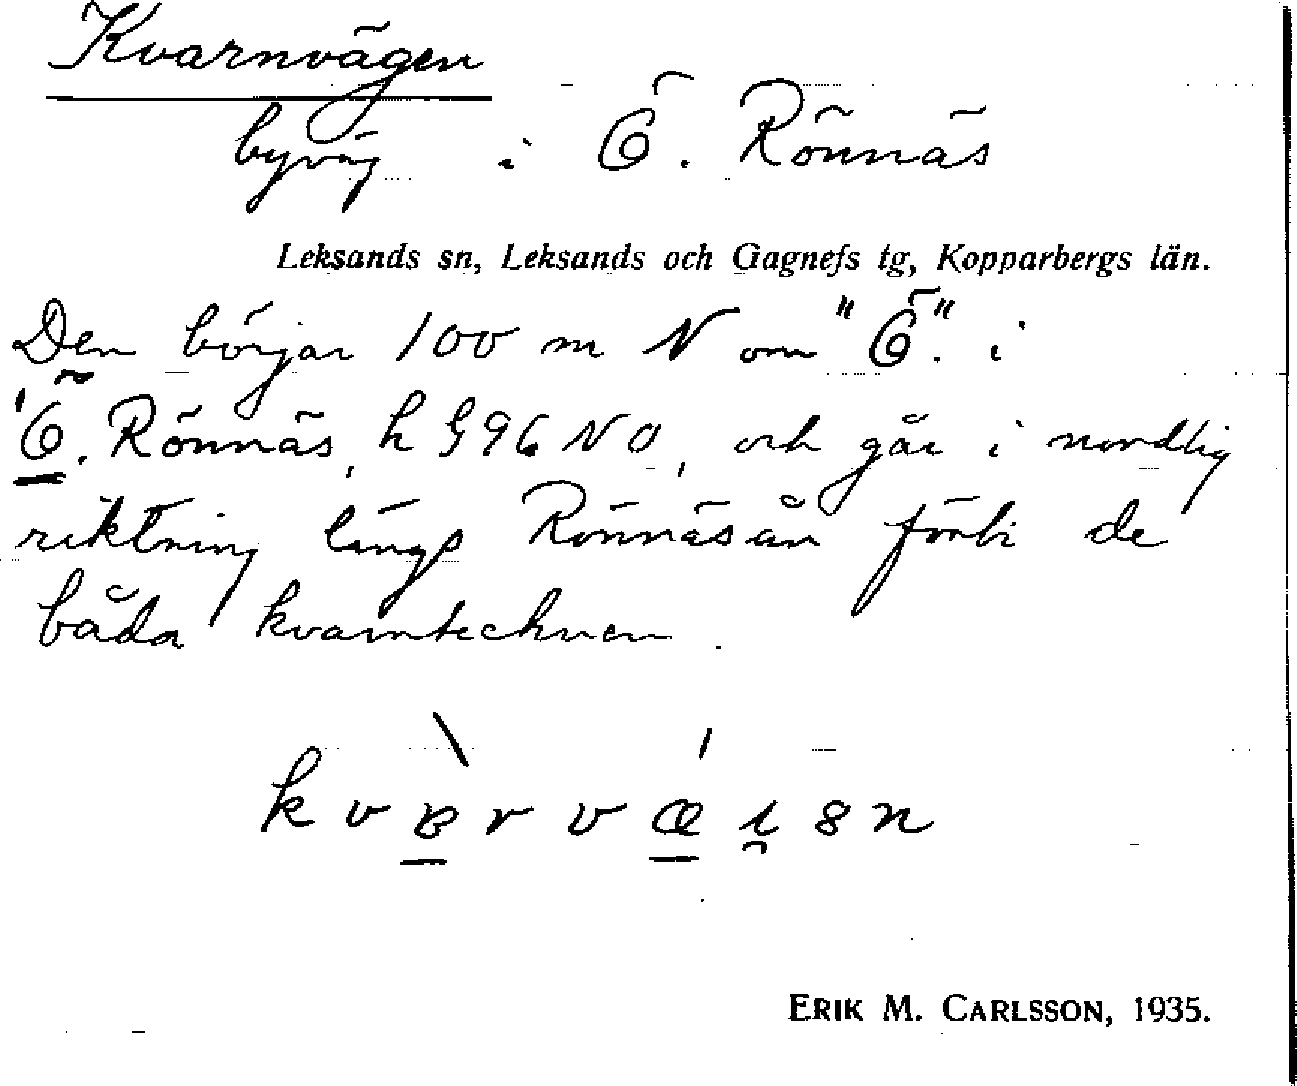 Kvarnvägen
byväg i Ö. Rönnäs
Leksands sn, Leksands och Gagnefs tg, Kopparbergs län.
Den börjar 100 m N om "Ö." i
Ö. Rönnäs, h G96 NO, och går i nordlig
riktning längs Rönnäsån förbi de
båda kvarntecknen.
ERIK M. CARLSSON, 1935.